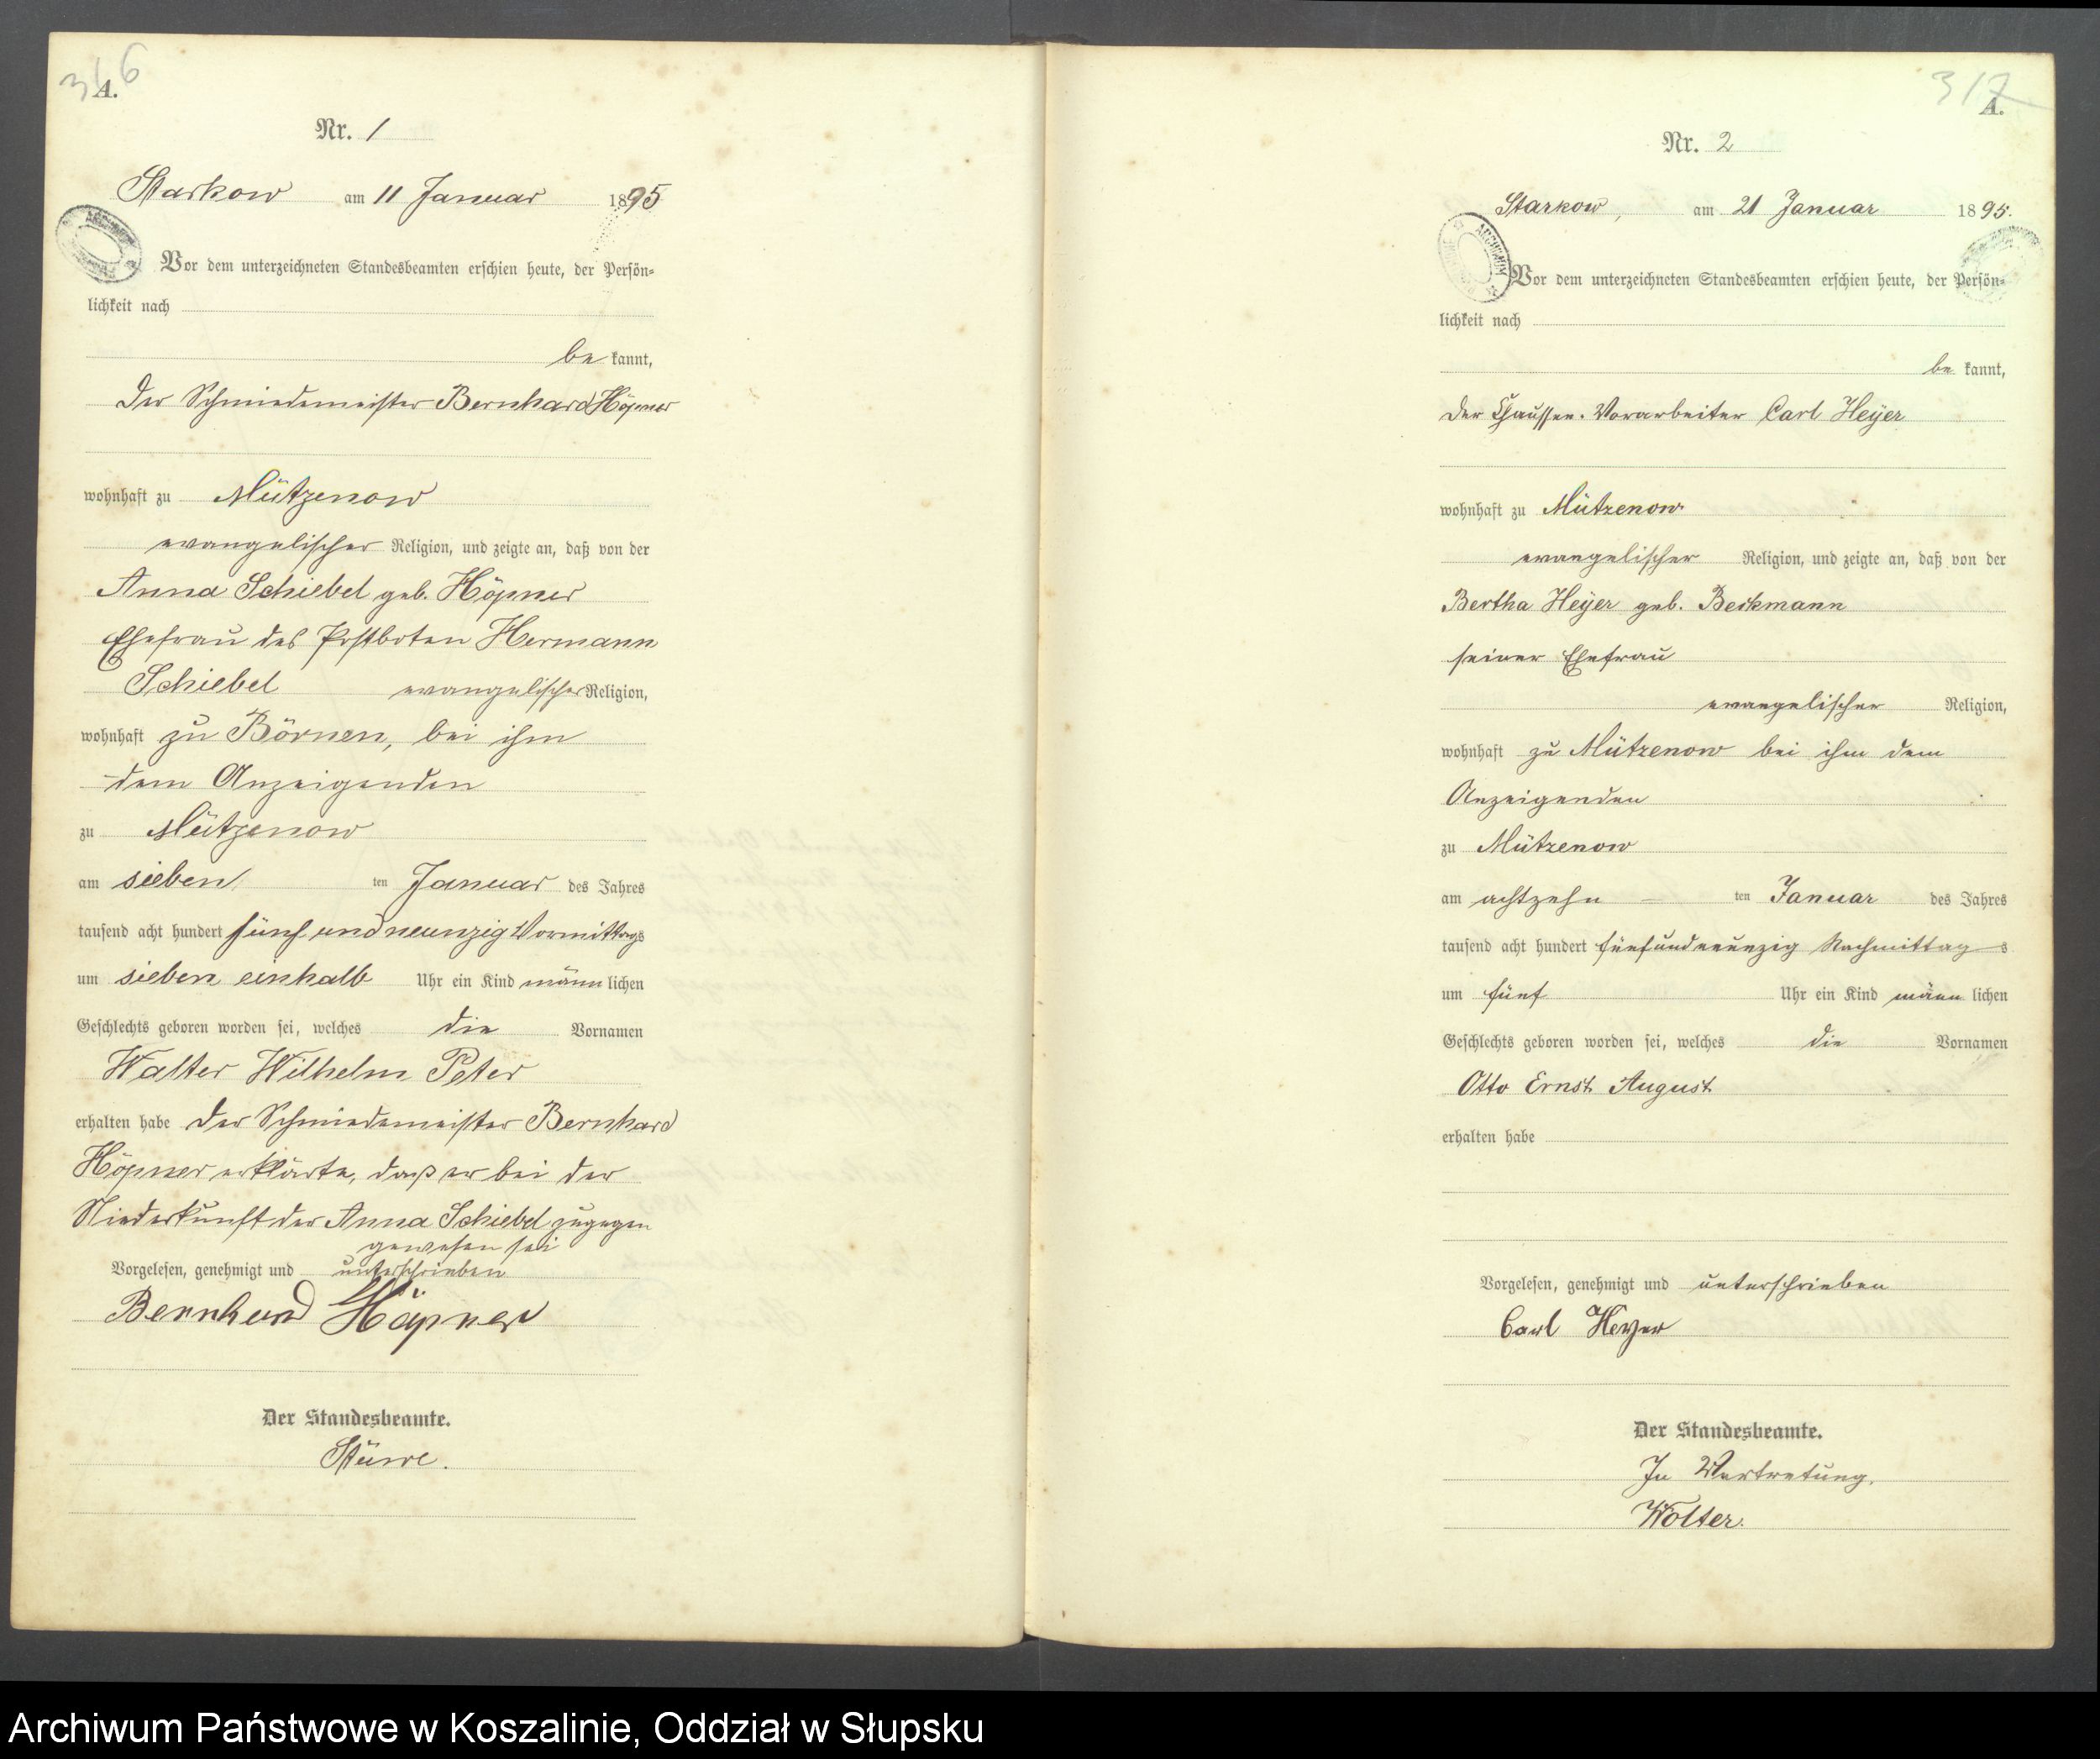 316
A.
Nr. 1
Starkow am 11 Januar 1895
Vor dem unterzeichneten Standesbeamten erschien heute, der Persön-
lichkeit nach
be kannt,
der Schmiedemeister Bernhard Höpner
wohnhaft zu Mützenow
evangelischer Religion, und zeigte an, daß von der
Anna Schiebel geb. Höpner
Ehefrau des Postboten Hermann
Schiebel evangelischer Religion,
wohnhaft zu Börnen, bei ihm
dem Anzeigenden
zu Mützenow
am sieben ten Januar des Jahres
tausend acht hundert fünf und neunzig Vormittags
um sieben einhalb Uhr ein Kind männ lichen
Geschlechts geboren worden sei, welches die Vornamen
Walter Wilhelm Peter
erhalten habe der Schmiedemeister Bernhard
Höpner erklärte, daß er bei der
Niederkunft der Anna Schiebel zugegen
gewesen sei
Vorgelesen, genehmigt und unterschrieben
Bernhard Höpner
Der Standesbeamte.
Stüwe.
317
A.
Nr. 2
Starkow, am 21 Januar 1895.
ARCHIWUM
Vor dem unterzeichneten Standesbeamten erschien heute, der Persön-
lichkeit nach
be kannt,
der Chaussee-Vorarbeiter Carl Heyer
wohnhaft zu Mützenow
evangelischer Religion, und zeigte an, daß von der
Bertha Heyer geb. Beckmann
seiner Ehefrau
evangelischer Religion,
wohnhaft zu Mützenow bei ihm dem
Anzeigenden
zu Mützenow
am achtzehn ten Januar des Jahres
tausend acht hundert fünfundneunzig Nachmittag s
um fünf Uhr ein Kind männ lichen
Geschlechts geboren worden sei, welches die Vornamen
Otto Ernst August
erhalten habe
Vorgelesen, genehmigt und unterschrieben
Carl Heyer
Der Standesbeamte.
In Vertretung.
Wolter.
Archiwum Państwowe w Koszalinie, Oddział w Słupsku